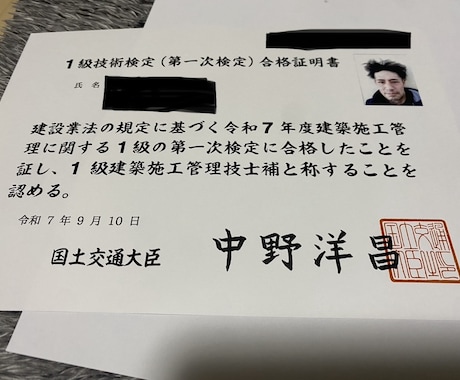 1級技術検定(第一次検定)合格証明書
氏名
建設業法の規定に基づく令和7年度建築施工管
理に関する1級の第一次検定に合格したことを
証し、1級建築施工管理技士補と称することを
認める。
令和7年9月10日
国土交通大臣 中野洋昌